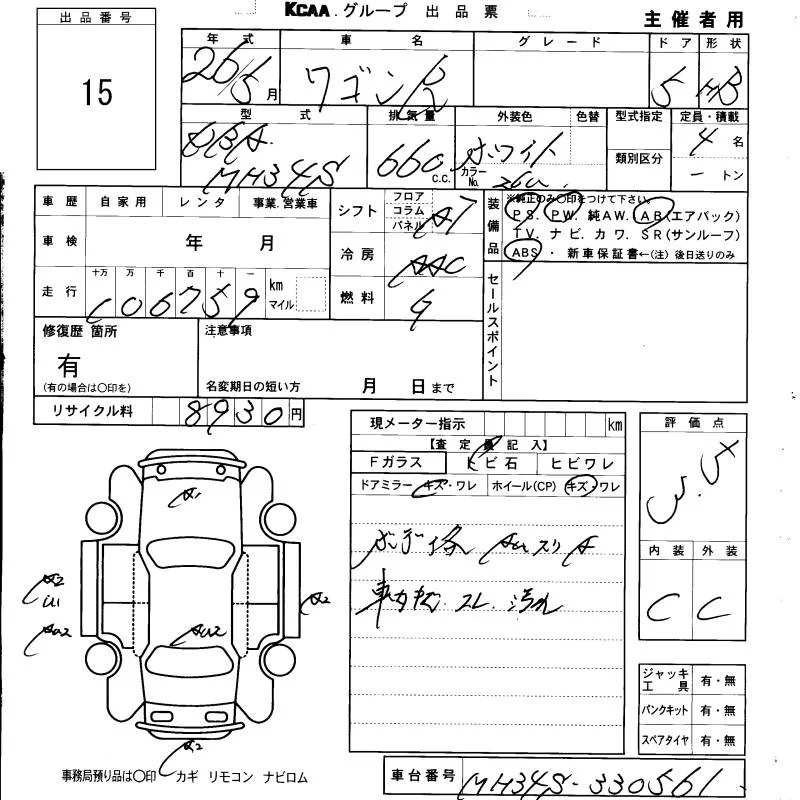 KCAA.グループ 出品票
主催者用
出品番号
15
年式 車名 グレード ドア 形状
26/5月 ワゴンR 5 HB
型式 排気量 外装色 色替 型式指定 定員・積載
DBA 660 ホワイト 4名
MH34S C.C. カラーNo. 26U 類別区分 ートン
車歴 自家用 レンタ 事業.営業車
車検 年 月
走行 十万 万 千 百 十 一 km マイル
106759
シフト フロア コラム パネル AT
冷房 AAC
燃料 G
装備品
※純正のみ○印をつけて下さい。
PS. PW. 純AW. AB(エアバック)
TV. ナビ. カワ. SR(サンルーフ)
ABS ・ 新車保証書←(注)後日送りのみ
セールスポイント
修復歴 箇所
有
(有の場合は○印を)
注意事項
名変期日の短い方 月 日まで
リサイクル料 8930円
現メーター指示 km
【査定員記入】
Fガラス トビ石 ヒビワレ
ドアミラー キズ・ワレ ホイール(CP) キズ・ワレ
車内 スレ 汚れ
評価点
3.5
内装 外装
C C
ジャッキ工具 有・無
パンクキット 有・無
スペアタイヤ 有・無
A1
A2
U1
AU2
A2
AU2
A2
事務局預り品は○印 カギ リモコン ナビロム
車台番号 MH34S-330561